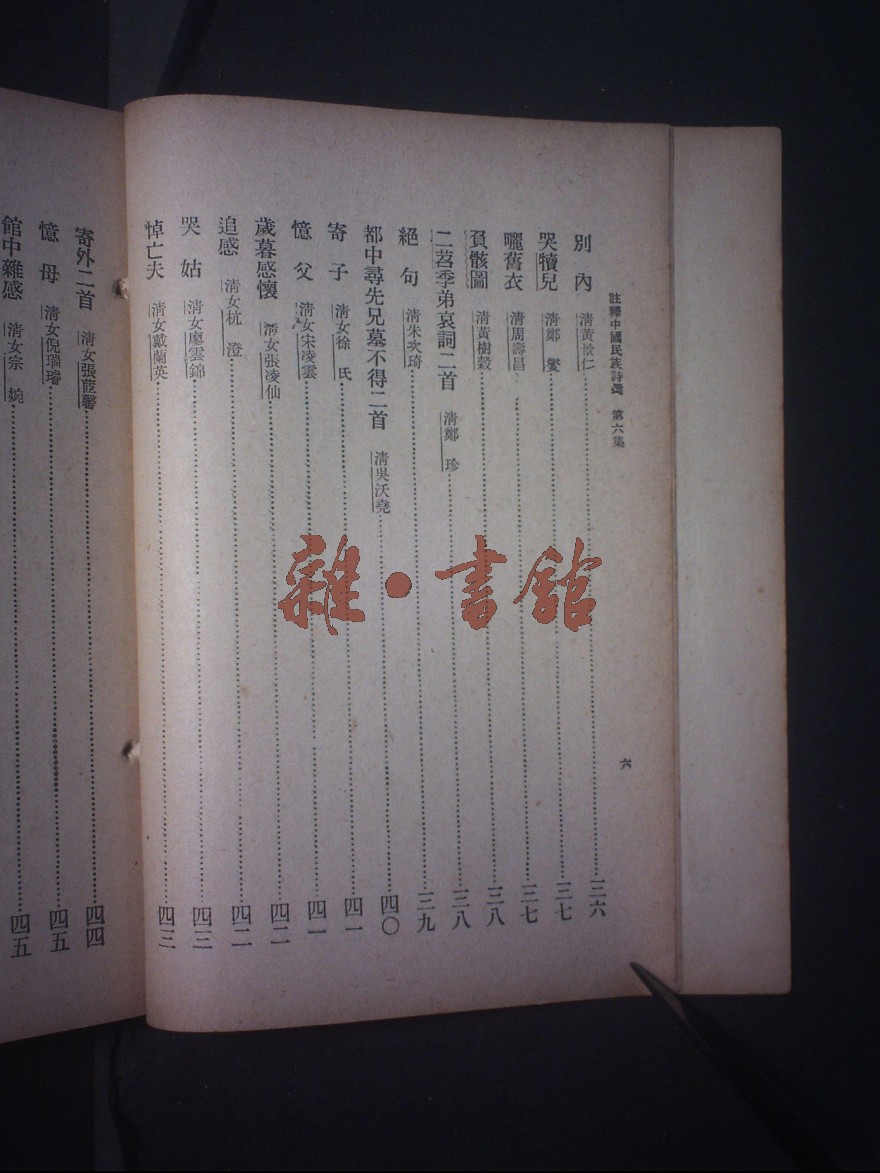 註釋中國民族詩選 第六集
六
別內 清黃景仁 三六
哭犢兒 清鄭燮 三七
曬舊衣 清周壽昌 三七
負骸圖 清黃樹穀 三八
二苕季弟哀詞二首 清鄭珍 三八
絕句 清朱次琦 三九
都中尋先兄墓不得二首 清吳沃堯 四〇
寄子 清女徐氏 四一
憶父 清女宋凌雲 四一
歲暮感懷 清女張凌仙 四二
追感 清女杭澄 四二
哭姑 清女廖雲錦 四三
悼亡夫 清女戴蘭英 四三
寄外二首 清女張蒞馨 四四
憶母 清女倪瑞璿 四五
館中雜感 清女宗婉 四五
雜·書館